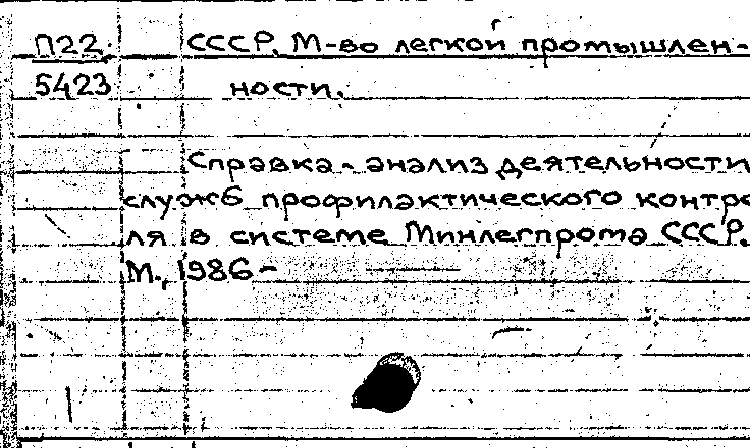 П22 СССР. М-во легкой промышлен-
5423 ности.
Справка-анализ деятельности
служб профилактического контро
ля в системе Минлегпрома СССР.
М., 1986-